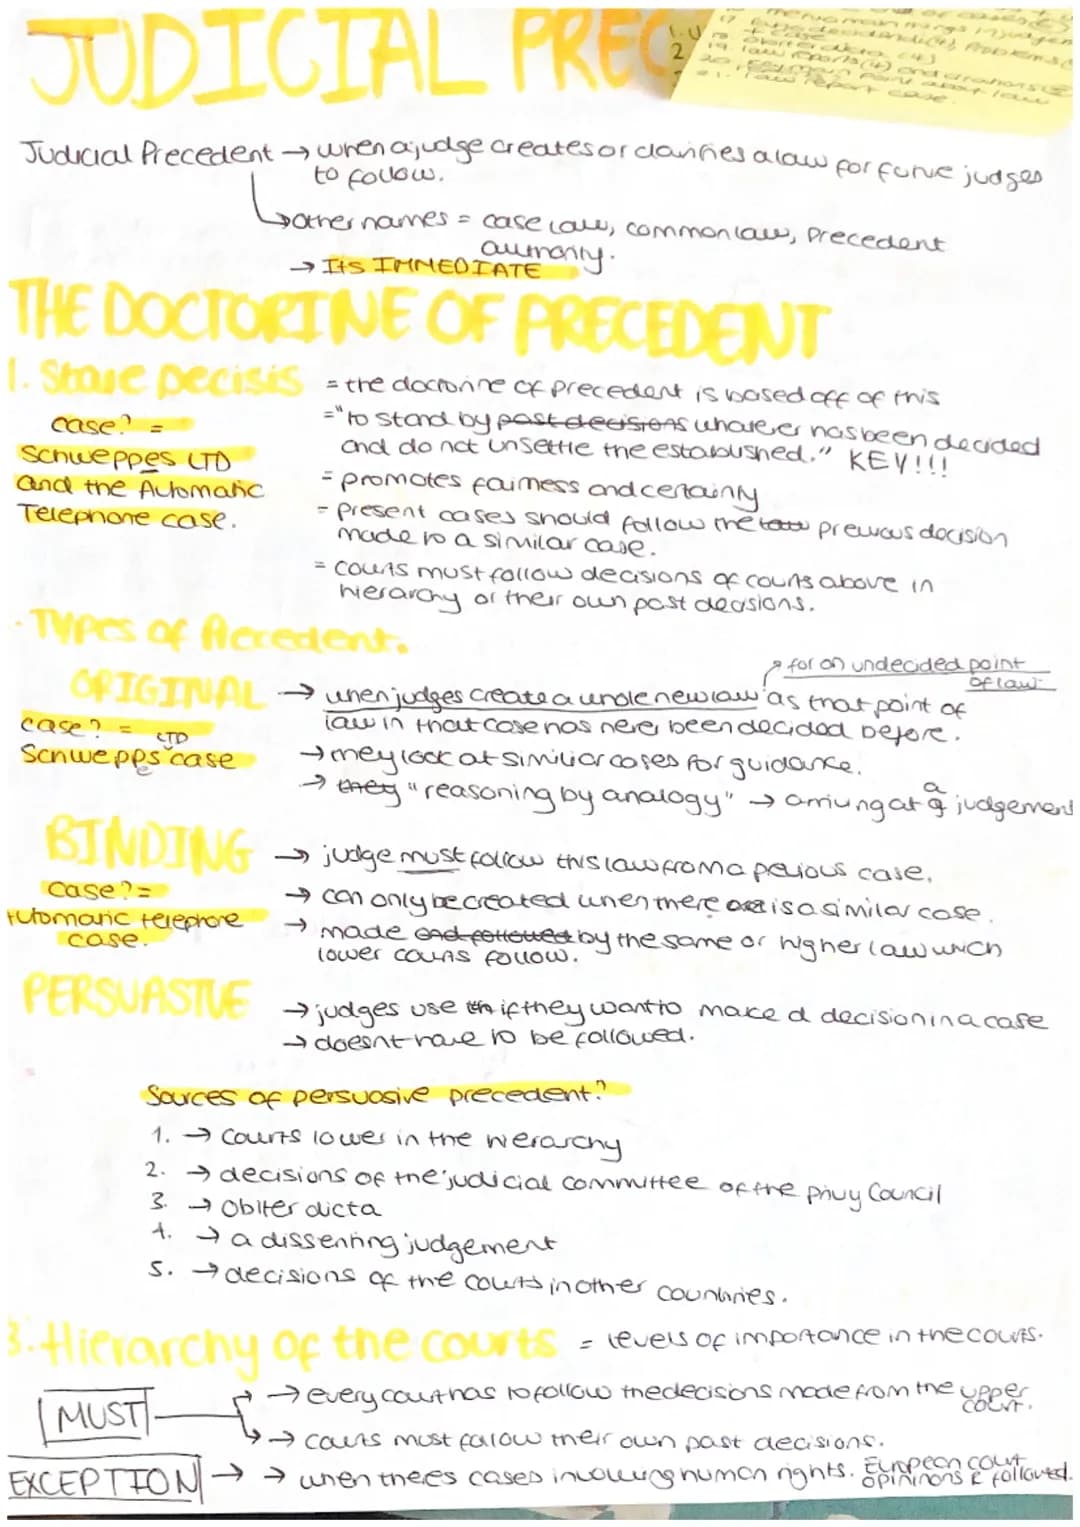 JUDICIAL PREC
1. U
2.
17
+ case
obiter dicta (4)
19. law reports (4) and
20.
21. law report case.
Judicial Precedent → when a judge creates or clarifies a law for future judges
to follow.
↳ other names = case law, common law, precedent
authority.
→ Its IMMEDIATE
THE DOCTORINE OF PRECEDENT
1. Stare Decisis = the doctorine of precedent is based off of this
case? =
Schweppes LTD
and the Automatic
Telephone case.
="to stand by past decisions whatever has been decided
and do not unsettle the established." KEY!!!
= promotes fairness and certainty
= present cases should follow the previous decision
made to a similar case.
= courts must follow decisions of courts above in
hierarchy or their own past decisions.
· Types of Precedent.
for an undecided point
of law
ORIGINAL → when judges create a whole new law as that point of
law in that case has never been decided before.
case? =
LTD
Schwepps case
e
→ mey look at similior cases for guidance.
→ they "reasoning by analogy" → arriving at a judgement
a
BINDING → judge must follow this law from a pevious case.
case? =
Automatic telephone
case.
→ can only be created when there is a similar case.
→ made and followed by the same or higher law which
lower courts follow.
PERSUASIVE → judges use if they want to make a decision in a case
→ doesnt have to be followed.
Sources of persuasive precedent?
1. → Courts lower in the hierarchy
2. → decisions of the judicial committee of the privy Council
3. → Obiter dicta
4. → a dissenting judgement
5. → decisions of the courts in other countries.
3. Hierarchy of the courts = levels of importance in the courts.
MUST → every court has to follow the decisions made from the upper
court.
→ courts must follow their own past decisions.
EXCEPTION → → when theres cases involving human rights. European court
opininons r followed.